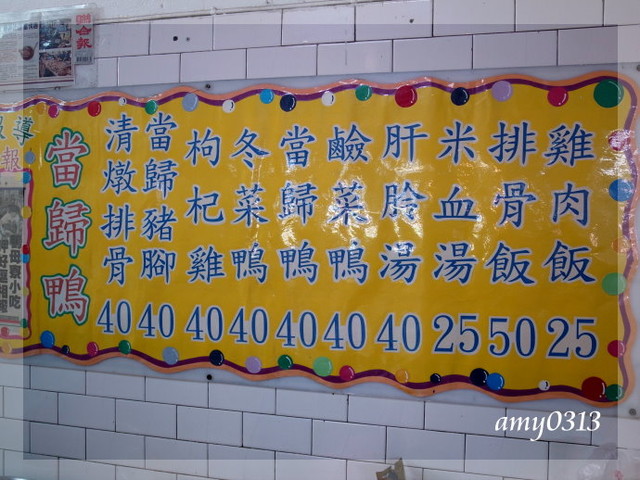 聯合報
報導
當歸鴨
清燉排骨 40
當歸豬腳 40
枸杞雞 40
冬菜鴨 40
當歸鴨 40
鹼菜鴨 40
肝肣湯 40
米血湯 25
排骨飯 50
雞肉飯 25
amy0313